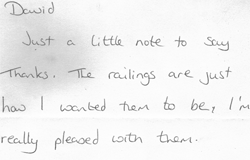 David
Just a little note to say
Thanks. The railings are just
how I wanted them to be, I'm
really pleased with them.